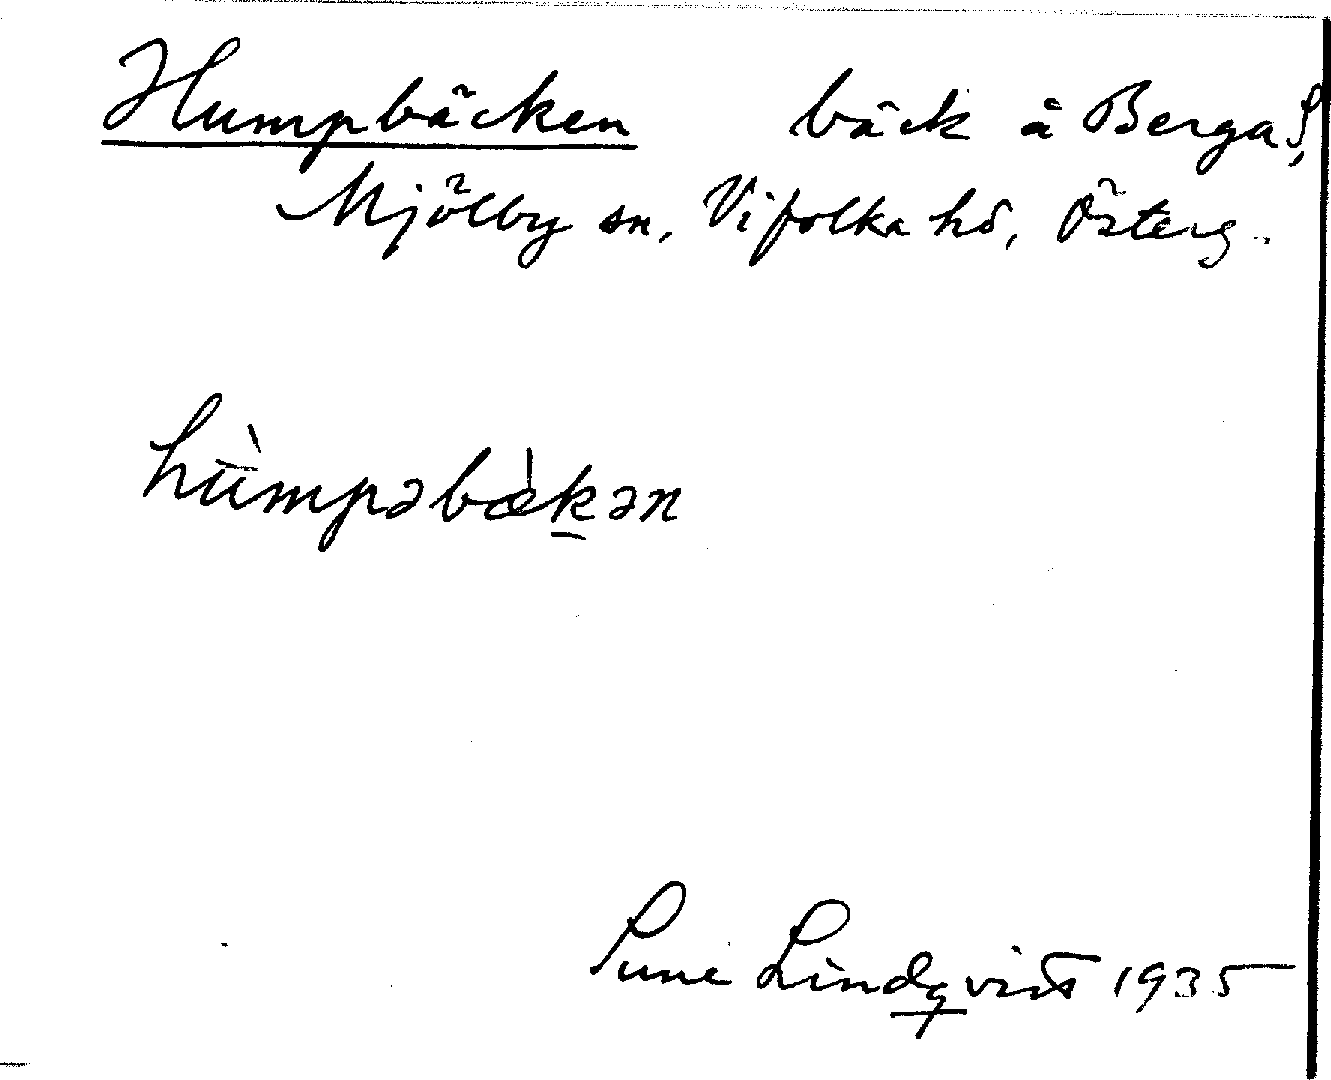 Humpbäcken bäck å Berga S,
Mjölby sn, Vifolka hd, Österg.
hùmpəbæ̀k̠ən
Sune Lindqvist 1935